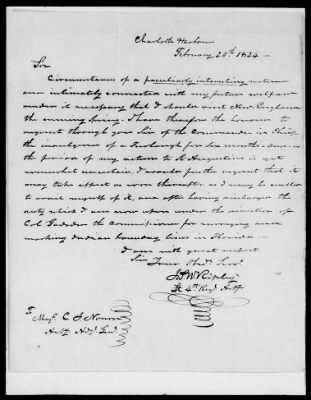 Charlotte Harbour
February 20th 1824
Sir
Circumstances of a peculiarly interesting nature
and intimately connected with my future welfare
render it necessary that I should visit New England
the ensuing Spring. I have therefore the honour to
request through you Sir of the Commander in Chief
the indulgence of a Furlough for six months. As
the period of my return to St Augustine is yet
somewhat uncertain I would further request that it
may take effect as soon thereafter as I may be enabled
to avail myself of it, and after having discharged the
duty which I am now upon under the direction of
Col Gadsden the Commissioner for surveying and
marking Indian boundary lines in Florida
I am with great respect
Sir Your Obd. Servt
Jas W Ripley
Lt 4th Regt Arty
To
Majr C J Nourse
Actg Adjt Genl